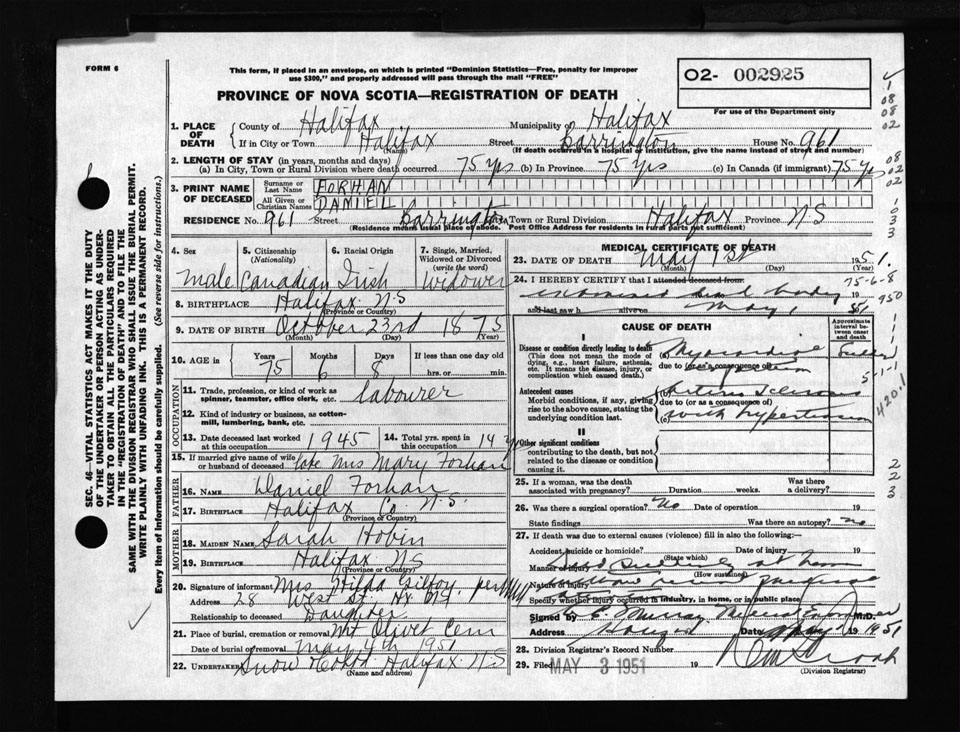 FORM 6
This form, if placed in an envelope, on which is printed "Dominion Statistics—Free, penalty for improper
use $300," and properly addressed will pass through the mail "FREE"
O2- 002925
PROVINCE OF NOVA SCOTIA—REGISTRATION OF DEATH
For use of the Department only
1. PLACE OF DEATH
County of Halifax Municipality of Halifax
If in City or Town Halifax Street Barrington House No. 961
(If death occurred in a hospital or institution, give the name instead of street and number)
2. LENGTH OF STAY (in years, months and days)
(a) In City, Town or Rural Division where death occurred 75 yrs (b) In Province 75 yrs (c) In Canada (if immigrant) 75 yrs
3. PRINT NAME OF DECEASED
Surname or Last Name FORHAN
All Given or Christian Names DANIEL
RESIDENCE No. 961 Street Barrington City, Town or Rural Division Halifax Province N.S
(Residence means usual place of abode. Post Office Address for residents in rural parts not sufficient)
4. Sex 5. Citizenship (Nationality) 6. Racial Origin 7. Single, Married, Widowed or Divorced (write the word)
Male Canadian Irish Widower
8. BIRTHPLACE Halifax N.S
(Province or Country)
9. DATE OF BIRTH October 23rd 1875
(Month) (Day) (Year)
10. AGE in Years Months Days If less than one day old
75 6 8 hrs. or min.
OCCUPATION
11. Trade, profession, or kind of work as spinner, teamster, office clerk, etc. labourer
12. Kind of industry or business, as cotton-mill, lumbering, bank, etc.
13. Date deceased last worked at this occupation 1945 14. Total yrs. spent in this occupation 14 yrs
15. If married give name of wife or husband of deceased late Mrs Mary Forhan
FATHER
16. NAME Daniel Forhan
17. BIRTHPLACE Halifax Co. N.S.
(Province or Country)
MOTHER
18. MAIDEN NAME Sarah Hobin
19. BIRTHPLACE Halifax N.S
(Province or Country)
20. Signature of informant Mrs. Hilda
Address 28 West St. Hx N.S.
Relationship to deceased Daughter
21. Place of burial, cremation or removal Mt Olivet Cem
Date of burial or removal May 4th 1951
22. UNDERTAKER Snow Halifax N.S
(Name and address)
MEDICAL CERTIFICATE OF DEATH
23. DATE OF DEATH May 1st 1951
(Month) (Day) (Year)
24. I HEREBY CERTIFY that I attended deceased from
examined dead body 19
and last saw h alive on May 1 51
CAUSE OF DEATH
Approximate interval between onset and death
I
Disease or condition directly leading to death
(This does not mean the mode of dying, e.g., heart failure, asthenia, etc. It means the disease, injury, or complication which caused death.)
(a) Myocardial
due to (or as a consequence of)
Antecedent causes
Morbid conditions, if any, giving rise to the above cause, stating the underlying condition last.
(b) Arterio Sclerosis
due to (or as a consequence of)
(c) with hypertension
II
Other significant conditions
contributing to the death, but not related to the disease or condition causing it.
25. If a woman, was the death associated with pregnancy? Duration weeks. Was there a delivery?
26. Was there a surgical operation? No Date of operation 19
State findings Was there an autopsy? no
27. If death was due to external causes (violence) fill in also the following:—
Accident, suicide or homicide? Date of injury 19
(State which)
Manner of injury died suddenly at home
(How sustained)
Nature of injury
Specify whether injury occurred in industry, in home, or in public place
Signed by E. Murray Medical Examiner M.D.
Address Halifax Date May 1 1951
28. Division Registrar's Record Number
29. Filed MAY 3 1951 19
(Division Registrar)
SEC. 46—VITAL STATISTICS ACT MAKES IT THE DUTY
OF THE UNDERTAKER OR PERSON ACTING AS UNDER-
TAKER TO OBTAIN ALL THE PARTICULARS REQUIRED
IN THE "REGISTRATION OF DEATH" AND TO FILE THE
SAME WITH THE DIVISION REGISTRAR WHO SHALL ISSUE THE BURIAL PERMIT.
WRITE PLAINLY WITH UNFADING INK. THIS IS A PERMANENT RECORD.
Every item of information should be carefully supplied. (See reverse side for instructions.)
1
08
08
02
08
02
02
0
3
3
75-6-8
950
5-1-1
420.1
2
2
3